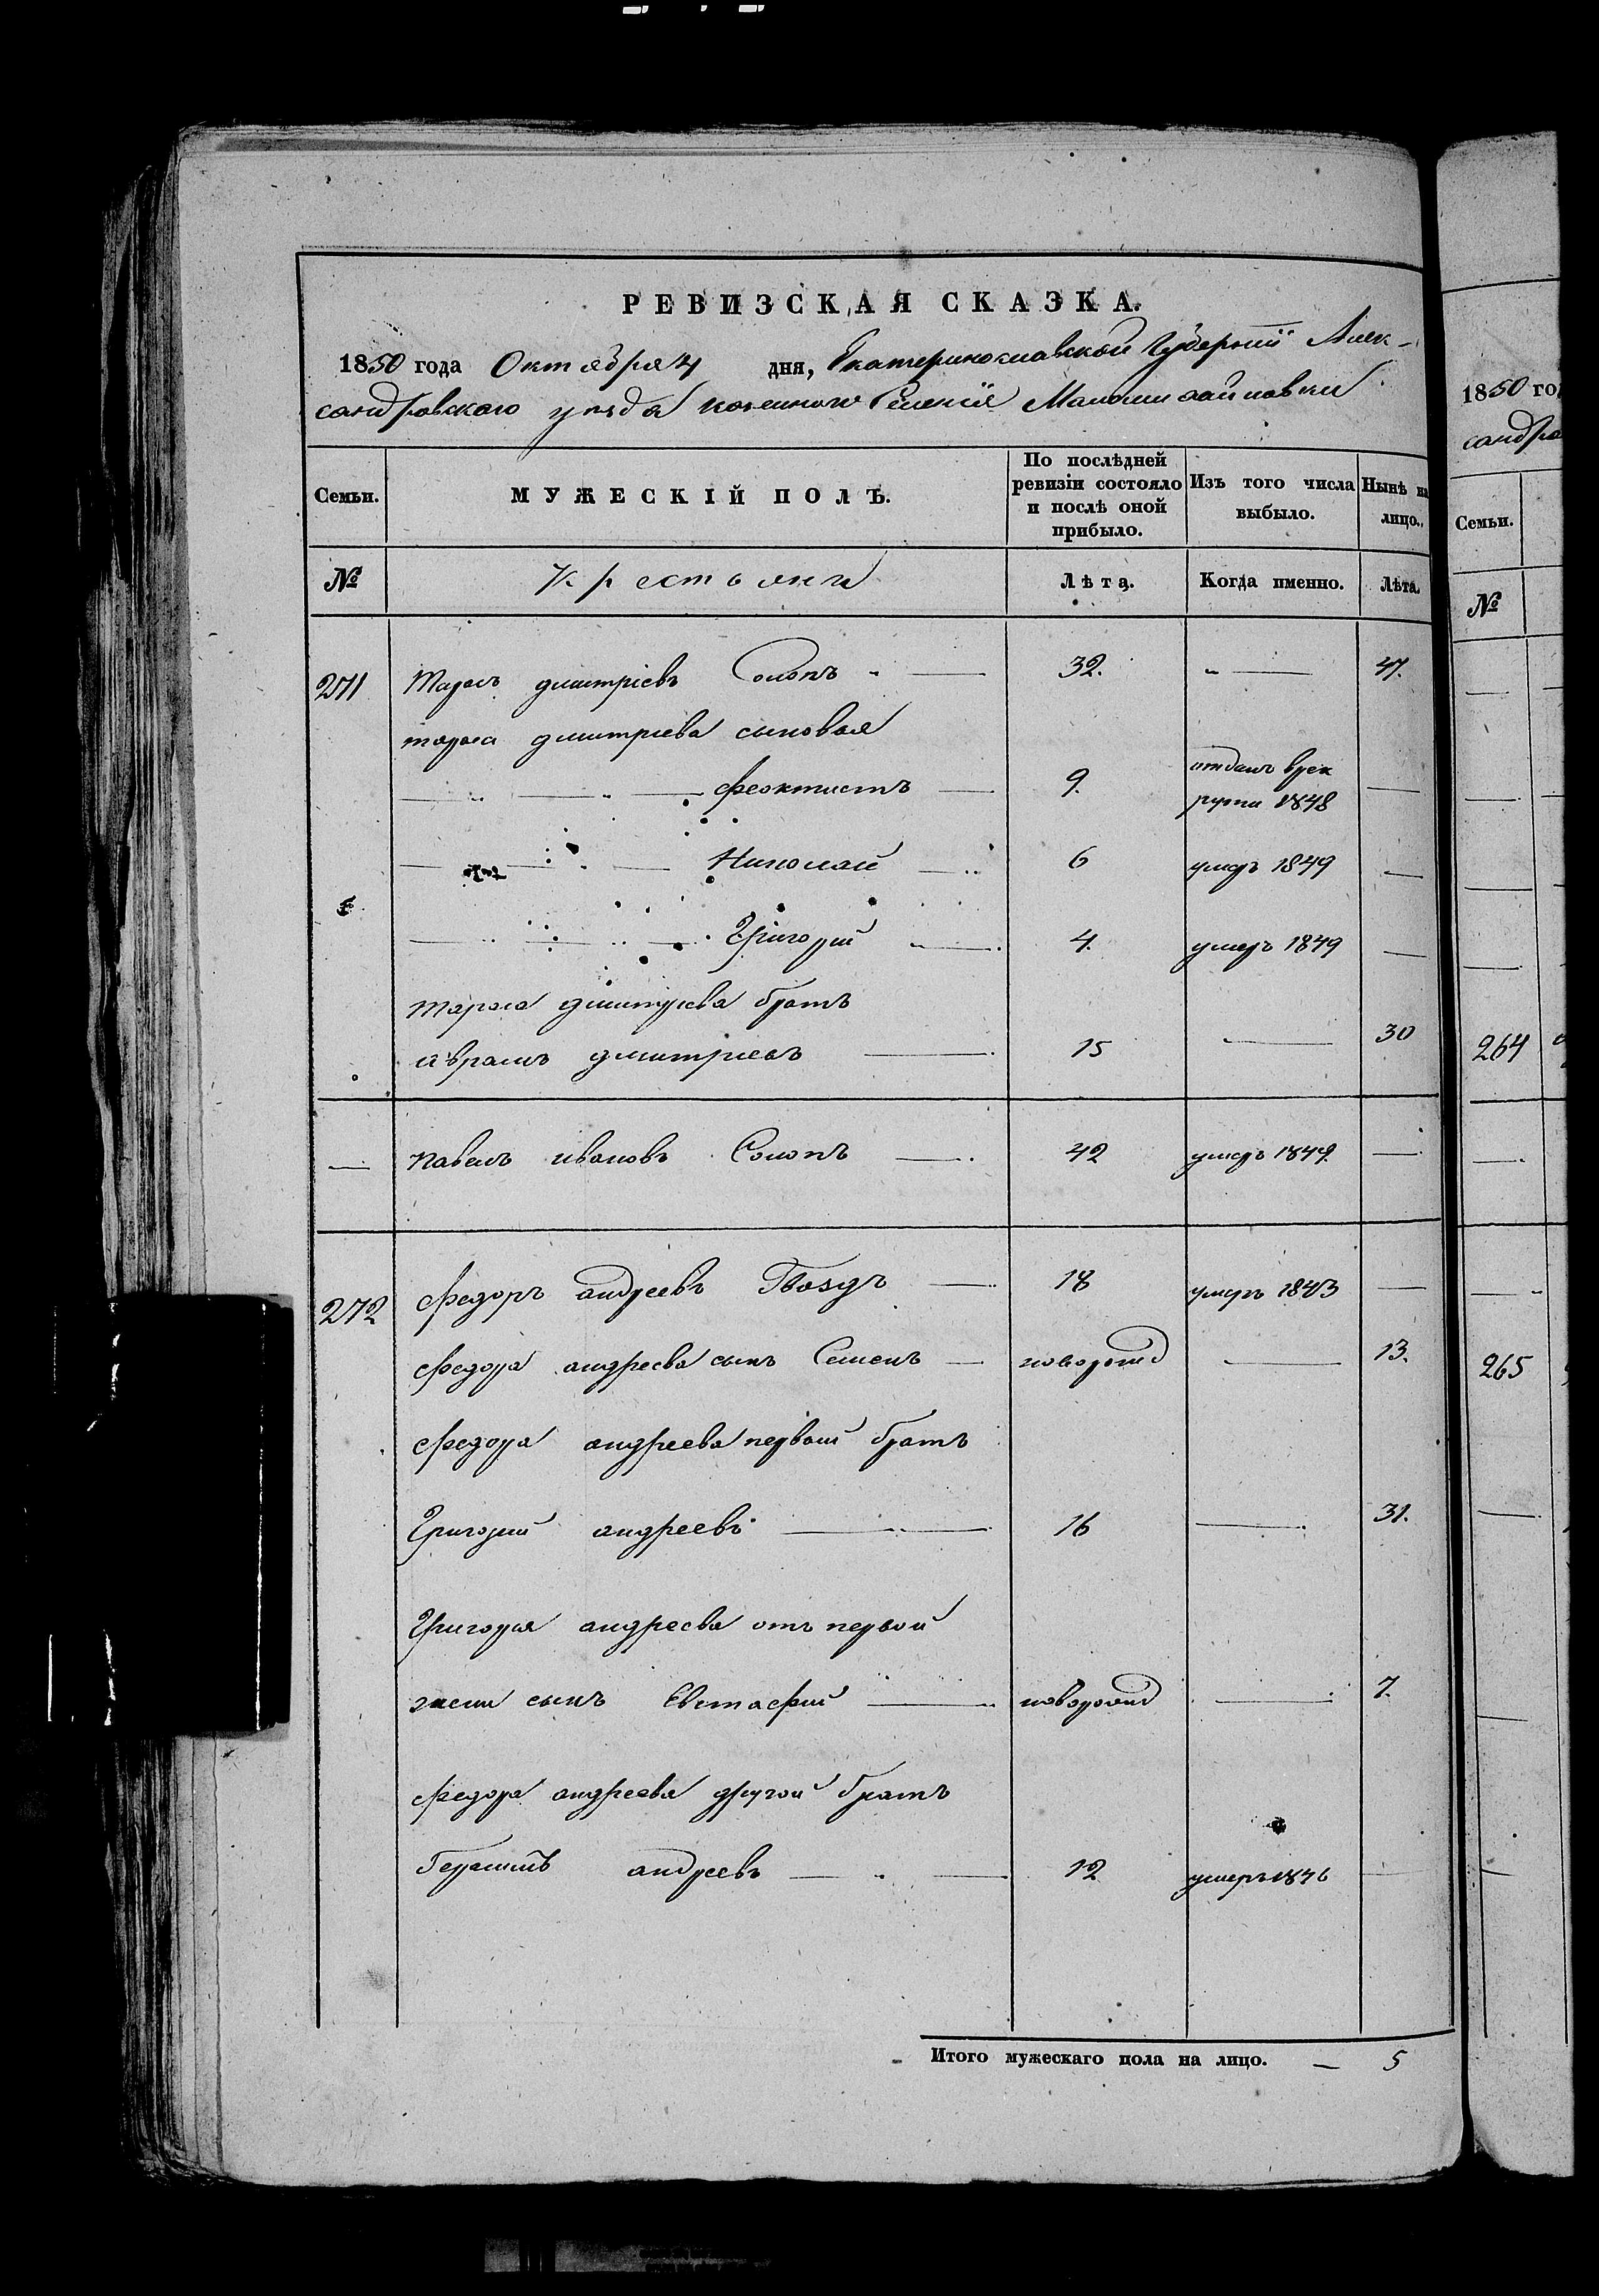 РЕВИЗСКАЯ СКАЗКА.
1850 года Октября 4 дня, Екатеринославской Губернии Алек-
сандровскаго уезда казенного Селенія Маломихайловки
Семьи. МУЖЕСКІЙ ПОЛЪ. По послѣдней ревизіи состояло и послѣ оной прибыло. Изъ того числа выбыло. Нынѣ на лицо.
№ Крестьяни Лѣта. Когда именно. Лѣта.
271 Тарасъ дмитріевъ Солопъ 32. 47.
тараса дмитріева сыновья
феоктистъ 9. отданъ врек
руты 1848
Николай 6 умеръ 1849
Григорій 4. умеръ 1849
тараса дмитріева братъ
аврамъ дмитріевъ 15 30
павелъ ивановъ Солопъ 42 умеръ 1849.
272 федоръ андреевъ Гвоздъ 18 умеръ 1843
федора андреева сынъ Семенъ новорожд 13.
федора андреева первый братъ
Григорий андреевъ 16 31.
Григория андреева отъ первой
жены сынъ Евстафий новорожд 7.
федора андреева другой братъ
Герасимъ андреевъ 12 умеръ 1846
Итого мужескаго пола на лицо. — 5
1850 го
сандро
Семьи.
№
264
265